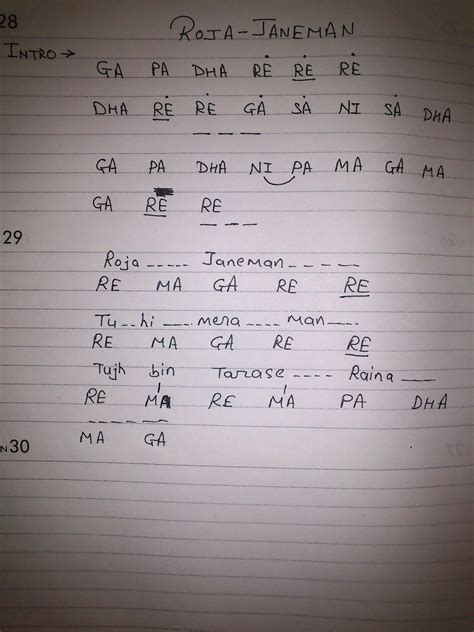 28
ROJA-JANEMAN
INTRO →
GA PA DHA RĖ RĖ RĖ
DHA RĖ RĖ GȦ SȦ NI SȦ DHA
_ _ _
GA PA DHA NI PA MA GA MA
GA RE RE
_ _ _
29
Roja _ _ _ _ _ Janeman _ _ _ _
RE MA GA RE RE
Tu _ _ hi _ _ _ mera _ _ _ _ man _ _ _
RE MA GA RE RE
Tujh bin Tarase _ _ _ _ Raina _ _
RE MA RE MA PA DHA
_ _ _ _ _
MA GA
N30